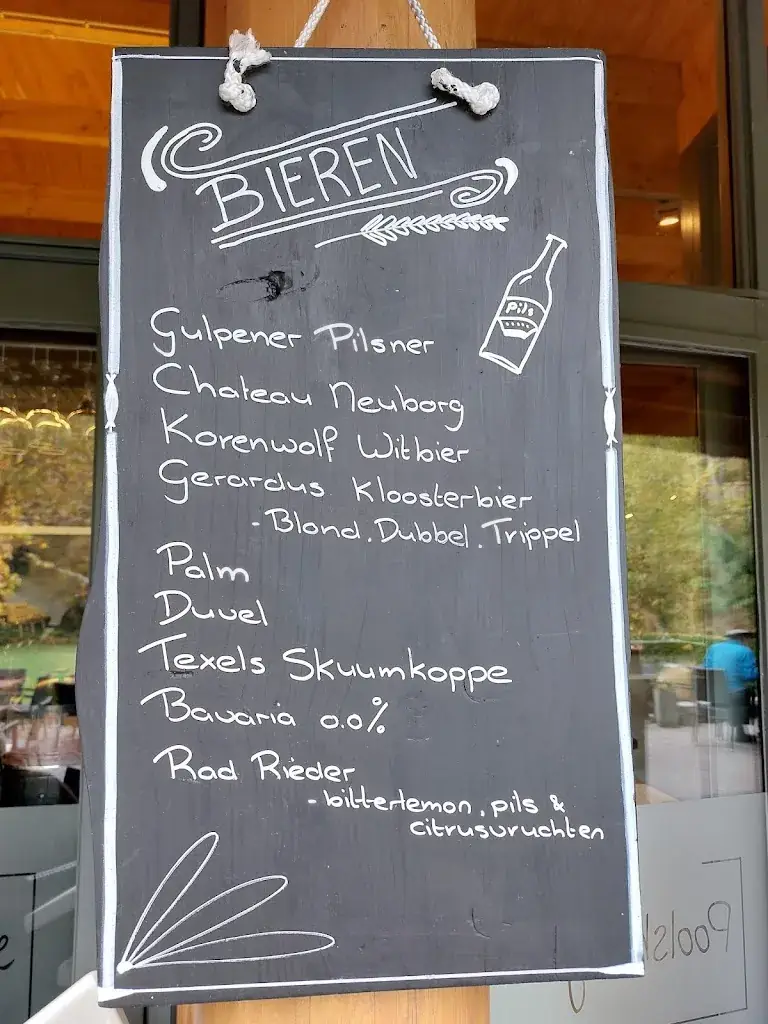 BIEREN
Pils
Gulpener Pilsner
Chateau Neuborg
Korenwolf Witbier
Gerardus Kloosterbier
- Blond. Dubbel. Trippel
Palm
Duvel
Texels Skuumkoppe
Bavaria 0.0%
Rad Rieder
- bitterlemon, pils &
citrusvruchten